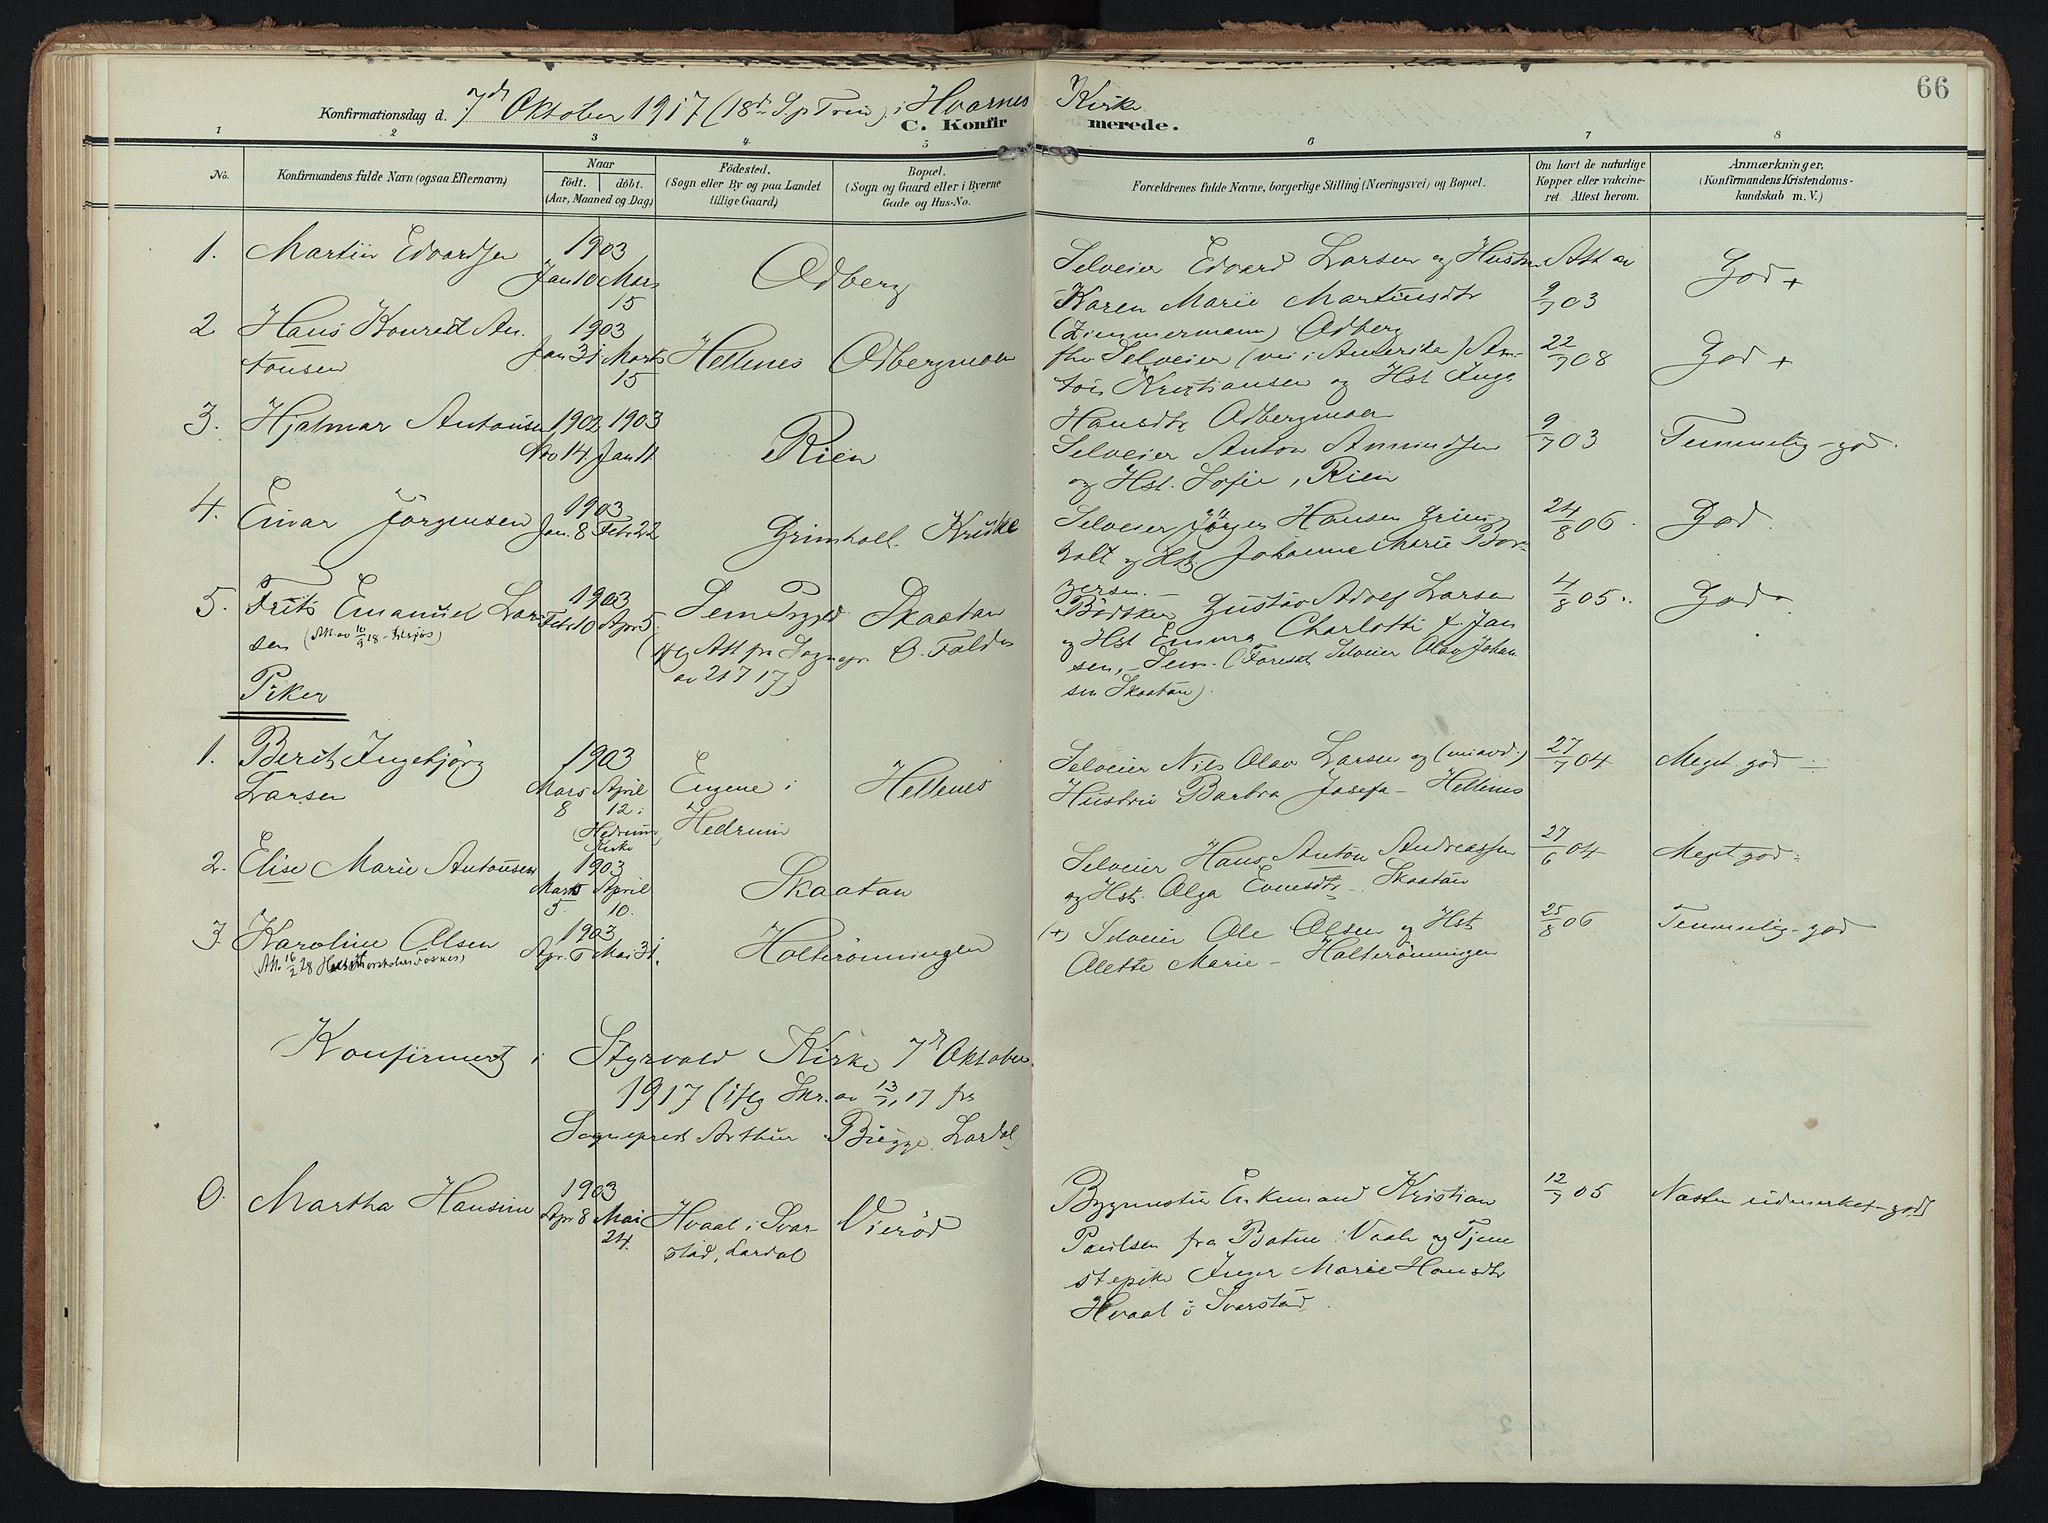 66
Konfirmationsdag d. 7de Oktober 1917 (18de S p Trin) i Hvarnes Kirke
C. Konfirmerede.
1 2 3 4 5 6 7 8
No.
Konfirmandens fulde Navn (ogsaa Efternavn)
Naar
födt. döbt.
(Aar, Maaned og Dag)
Födested.
(Sogn eller By og paa Landet
tillige Gaard)
Bopæl.
(Sogn og Gaard eller i Byerne
Gade og Hus-No.
Forældrenes fulde Navne, borgerlige Stilling (Næringsvei) og Bopæl.
Om havt de naturlige
Kopper eller vakcine-
ret. Attest herom.
Anmærkninger.
(Konfirmandens Kristendoms-
kundskab m. V.)
1. Martin Edvardsen
1903
Jan 10 Mars
15
Odberg
Selveier Edvard Larsen og Hustru
Karen Marie Martinsdtr
(Zimmermann) Odberg
Att av
9/7 03
God +
2. Hans Konradt An-
tonsen
1903
Jan 31 Marts
15
Hellenes
Odbergmoen
fhv Selveier (nu i Amerika) An-
ton Kristiansen og Hst Inga
Hansdtr Odbergmoen
22/7 08
God +
3. Hjalmar Antonsen
1902 1903
Nov 14. Jan 11
Rien
Selveier Anton Amundsen
og Hst. Sofie, Rien
9/7 03
Temmelig-god.
4. Einar Jörgensen
1903
Jan. 8 Febr 22
Grimholt.
Selveier Jörgen Hansen Grim-
holt og Hst Johanne Marie Tor-
gersen.
24/8 06.
God.
5. Frits Emanuel Lar-
sen
1903
Febr 10 Apr 5.
Sem
(flg Att fra Sognepr
av 21 7 17)
Skaatan
Bödker Gustav Adolf Larsen
og Hst Emma Charlotte f. Jan
sen, - Sem. (Foresat Selveier Olav Johan
sen Skaatan).
4/8 05.
God
Piker
1. Berit Ingebjörg
Larsen
1903
Mars April
8 12 i
(Hedrum
Kirke
Engene i
Hedrum
Hellenes
Selveier Nils Olav Larsen og
Hustru Barbra Josefa - Hellenes
27/7 04
Meget god
2. Elise Marie Antonsen
1903
Mars April
5. 10.
Skaatan
Selveier Hans Anton Andreassen
og Hst. Olga Evensdtr - Skaatan
27/6 04
Meget god
3. Karoline Olsen
1903
Apr. 6 Mai 31.
Holterönningen
(+) Selveier Ole Olsen og Hst
Olette Marie - Holterönningen
25/8 06
Temmelig-god
Konfirmert i Styrvold Kirke 7de Oktober
1917 (iflg Skr. av 13/11 17 fra
Sogneprest Arthur Bugge, Lardal
0. Martha Hansine
1903
Apr 8 Mai
24.
Hvaal i Svar
stad, Lardal
Vieröd
Bygmester Enkemand Kristian
Paulsen fra i Vaale og Tjene
stepike Inger Marie Hansdtr
Hvaal i Svarstad.
12/7 05
Næsten udmerket-god